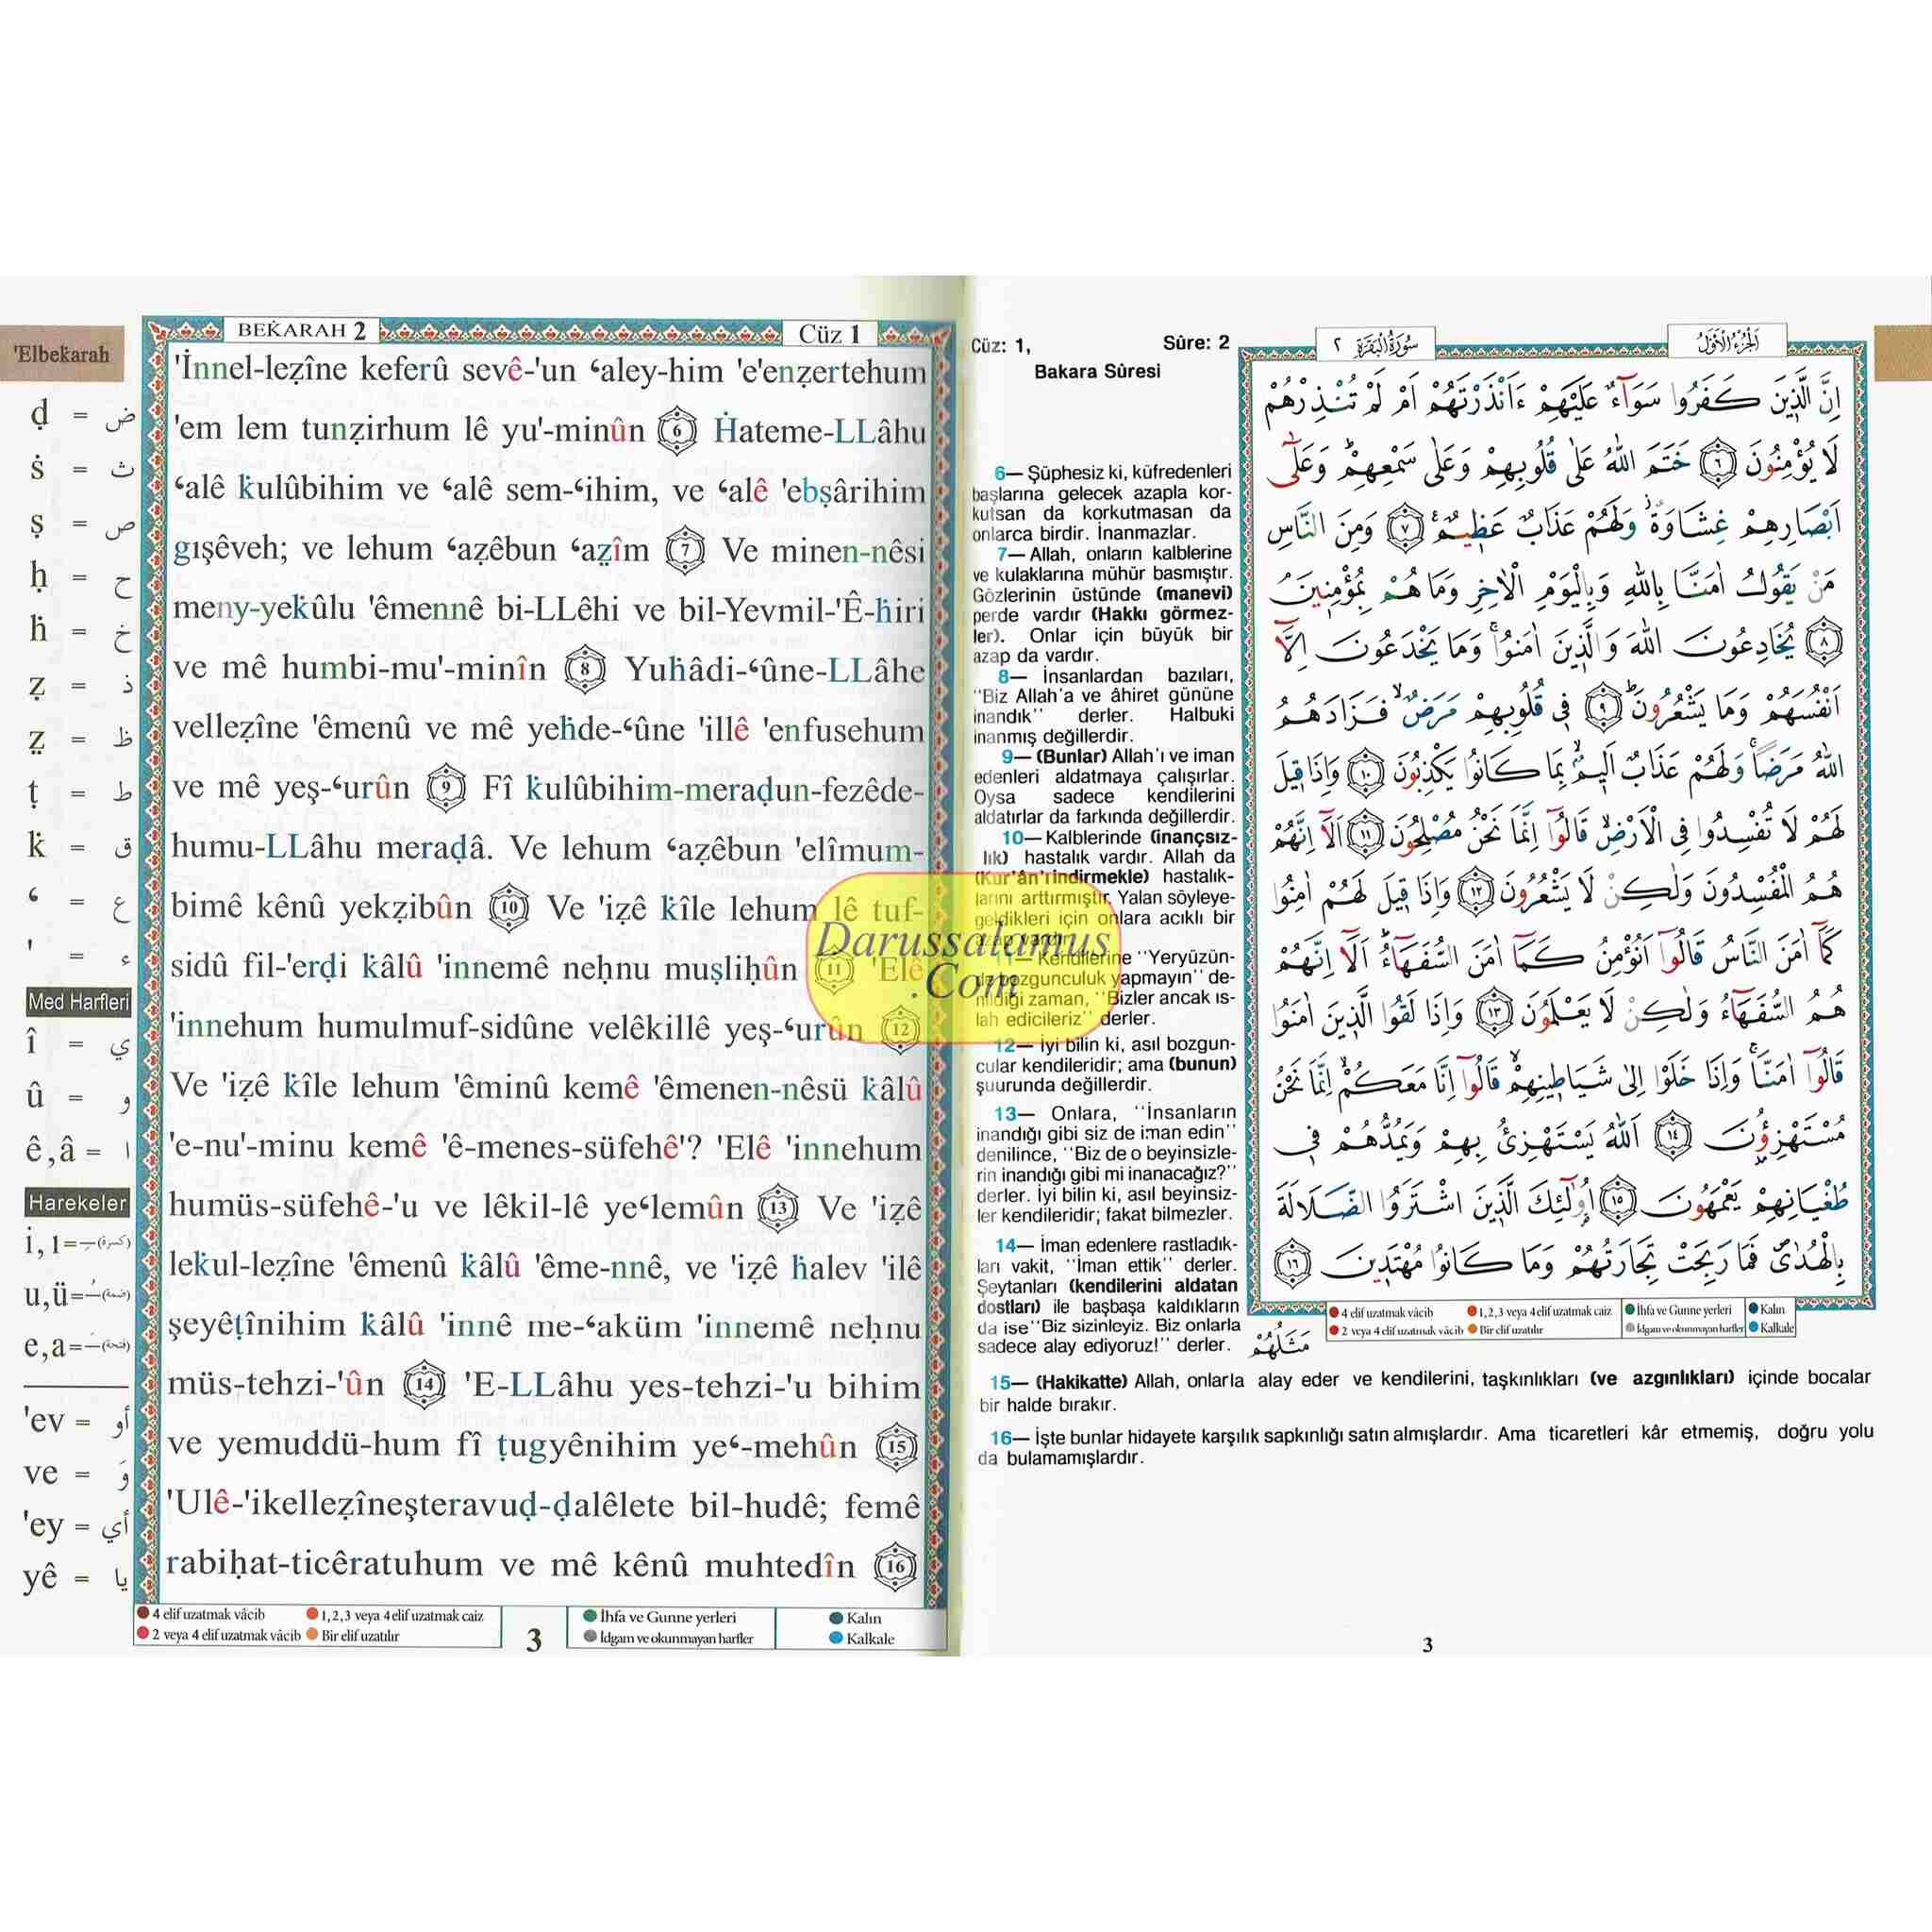 'Elbekarah
ḍ = ض
ṡ = ث
ṣ = ص
ḥ = ح
ḣ = خ
ẓ = ذ
ẓ̤ = ظ
ṭ = ط
k̇ = ق
ʻ = ع
' = ء
Med Harfleri
î = ي
û = و
ê,â = ا
Harekeler
i, ı = (كسرة)
u,ü = (ضمة)
e,a = (فتحة)
'ev = أو
ve = وَ
'ey = أي
yê = يا
BEK̇ARAH 2
Cüz 1
'İnnel-leẓîne keferû sevê-'un ʻaley-him 'e'enẓertehum
'em lem tunẓirhum lê yu'-minûn 6 Ḣateme-LLâhu
ʻalê k̇ulûbihim ve ʻalê sem-ʻihim, ve ʻalê 'ebṣârihim
gışêveh; ve lehum ʻaẓêbun ʻaẓ̤îm 7 Ve minen-nêsi
meny-yek̇ûlu 'êmennê bi-LLêhi ve bil-Yevmil-'Ê-ḣiri
ve mê humbi-mu'-minîn 8 Yuḣâdi-ʻûne-LLâhe
velleẓîne 'êmenû ve mê yeḣde-ʻûne 'illê 'enfusehum
ve mê yeş-ʻurûn 9 Fî k̇ulûbihim-meraḍun-fezêde-
humu-LLâhu meraḍâ. Ve lehum ʻaẓêbun 'elîmum-
bimê kênû yekẓibûn 10 Ve 'iẓê k̇île lehum lê tuf-
sidû fil-'erḍi k̇âlû 'innemê neḥnu muṣliḥûn 11 'Elê
'innehum humulmuf-sidûne velêkillê yeş-ʻurûn 12
Ve 'iẓê k̇île lehum 'êminû kemê 'êmenen-nêsü k̇âlû
'e-nu'-minu kemê 'ê-menes-süfehê'? 'Elê 'innehum
humüs-süfehê-'u ve lêkil-lê yeʻlemûn 13 Ve 'iẓê
lek̇ul-leẓîne 'êmenû k̇âlû 'ême-nnê, ve 'iẓê ḣalev 'ilê
şeyêṭînihim k̇âlû 'innê me-ʻaküm 'innemê neḥnu
müs-tehzi-'ûn 14 'E-LLâhu yes-tehzi-'u bihim
ve yemuddü-hum fî ṭugyênihim yeʻ-mehûn 15
'Ulê-'ikelleẓîneşteravuḍ-ḍalêlete bil-hudê; femê
rabiḥat-ticêratuhum ve mê kênû muhtedîn 16
4 elif uzatmak vâcib
1,2,3 veya 4 elif uzatmak caiz
2 veya 4 elif uzatmak vâcib
Bir elif uzatılır
3
İhfa ve Gunne yerleri
İdgam ve okunmayan harfler
Kalın
Kalkale
Cüz: 1, Sûre: 2
Bakara Sûresi
6— Şüphesiz ki, küfredenleri
başlarına gelecek azapla kor-
kutsan da korkutmasan da
onlarca birdir. İnanmazlar.
7— Allah, onların kalblerine
ve kulaklarına mühür basmıştır.
Gözlerinin üstünde (manevi)
perde vardır (Hakkı görmez-
ler). Onlar için büyük bir
azap da vardır.
8— İnsanlardan bazıları,
''Biz Allah'a ve âhiret gününe
inandık'' derler. Halbuki
inanmış değillerdir.
9— (Bunlar) Allah'ı ve iman
edenleri aldatmaya çalışırlar.
Oysa sadece kendilerini
aldatırlar da farkında değillerdir.
10— Kalblerinde (inançsız-
lık) hastalık vardır. Allah da
(Kur'ân'ı indirmekle) hastalık-
larını arttırmıştır. Yalan söyleye-
geldikleri için onlara acıklı bir
11— Kendilerine ''Yeryüzün-
de bozgunculuk yapmayın'' de-
nildiği zaman, ''Bizler ancak ıs-
lah edicileriz'' derler.
12— İyi bilin ki, asıl bozgun-
cular kendileridir; ama (bunun)
şuurunda değillerdir.
13— Onlara, ''İnsanların
inandığı gibi siz de iman edin''
denilince, ''Biz de o beyinsizle-
rin inandığı gibi mi inanacağız?''
derler. İyi bilin ki, asıl beyinsiz-
ler kendileridir; fakat bilmezler.
14— İman edenlere rastladık-
ları vakit, ''İman ettik'' derler.
Şeytanları (kendilerini aldatan
dostları) ile başbaşa kaldıkların
da ise ''Biz sizinleyiz. Biz onlarla
sadece alay ediyoruz!'' derler.
15— (Hakikatte) Allah, onlarla alay eder ve kendilerini, taşkınlıkları (ve azgınlıkları) içinde bocalar
bir halde bırakır.
16— İşte bunlar hidayete karşılık sapkınlığı satın almışlardır. Ama ticaretleri kâr etmemiş, doğru yolu
da bulamamışlardır.
Darussalamus
.Com
الجزء الأول
سورة البقرة ٢
اِنَّ الَّذٖينَ كَفَرُوا سَوَٓاءٌ عَلَيْهِمْ ءَاَنْذَرْتَهُمْ اَمْ لَمْ تُنْذِرْهُمْ
لَا يُؤْمِنُونَ ٦ خَتَمَ اللّٰهُ عَلٰى قُلُوبِهِمْ وَعَلٰى سَمْعِهِمْ وَعَلٰٓى
اَبْصَارِهِمْ غِشَاوَةٌ وَلَهُمْ عَذَابٌ عَظٖيمٌ ٧ وَمِنَ النَّاسِ
مَنْ يَقُولُ اٰمَنَّا بِاللّٰهِ وَبِالْيَوْمِ الْاٰخِرِ وَمَا هُمْ بِمُؤْمِنٖينَ
٨ يُخَادِعُونَ اللّٰهَ وَالَّذٖينَ اٰمَنُوا وَمَا يَخْدَعُونَ اِلَّٓا
اَنْفُسَهُمْ وَمَا يَشْعُرُونَ ٩ فٖى قُلُوبِهِمْ مَرَضٌ فَزَادَهُمُ
اللّٰهُ مَرَضًا وَلَهُمْ عَذَابٌ اَلٖيمٌ بِمَا كَانُوا يَكْذِبُونَ ١٠ وَاِذَا قٖيلَ
لَهُمْ لَا تُفْسِدُوا فِى الْاَرْضِ قَالُٓوا اِنَّمَا نَحْنُ مُصْلِحُونَ ١١ اَلَٓا اِنَّهُمْ
هُمُ الْمُفْسِدُونَ وَلٰكِنْ لَا يَشْعُرُونَ ١٢ وَاِذَا قٖيلَ لَهُمْ اٰمِنُوا
كَمَٓا اٰمَنَ النَّاسُ قَالُٓوا اَنُؤْمِنُ كَمَٓا اٰمَنَ السُّفَهَٓاءُ اَلَٓا اِنَّهُمْ
هُمُ السُّفَهَٓاءُ وَلٰكِنْ لَا يَعْلَمُونَ ١٣ وَاِذَا لَقُوا الَّذٖينَ اٰمَنُوا
قَالُٓوا اٰمَنَّا وَاِذَا خَلَوْا اِلٰى شَيَاطٖينِهِمْ قَالُٓوا اِنَّا مَعَكُمْ اِنَّمَا نَحْنُ
مُسْتَهْزِؤُنَ ١٤ اَللّٰهُ يَسْتَهْزِئُ بِهِمْ وَيَمُدُّهُمْ فٖى
طُغْيَانِهِمْ يَعْمَهُونَ ١٥ اُولٰٓئِكَ الَّذٖينَ اشْتَرَوُا الضَّلَالَةَ
بِالْهُدٰى فَمَا رَبِحَتْ تِجَارَتُهُمْ وَمَا كَانُوا مُهْتَدٖينَ ١٦
4 elif uzatmak vâcib
1,2,3 veya 4 elif uzatmak caiz
İhfa ve Gunne yerleri
Kalın
2 veya 4 elif uzatmak vâcib
Bir elif uzatılır
İdgam ve okunmayan harfler
Kalkale
مَثَلُهُمْ
3